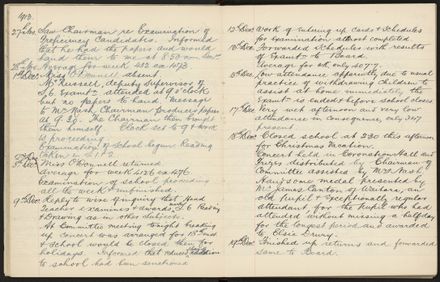 1913.
27 Nov. Saw Chairman re Examination of
Proficiency Candidates. Informed
that he had the papers and would
hand them to me at 8.50 a.m.
Average for week 452 ex 473
1st Dec. Miss O'Donnell absent.
Mr Russell, deputy Supervisor of
of Examns attended at 9 o'clock
but no papers to hand. Message
to Mr Nash, Chairman. Produced papers
at 9.30. The Chairman then brought
them himself. Clock set to 9 & work
of proceeding
Examination of School began. Reading
taken in
Miss O'Donnell returned
Average for week 453 ex 476
Examination of school proceeding
all the week & unfinished.
9th Dec. Reply to wire enquiring that Head
Teacher examines & Reading
& Drawing as in other subjects.
At Committee meeting tonight breaking
up concert was arranged for 18th inst
& school would be closed then for
holidays. Informed that addition
to school had been sanctioned
12 Dec. Work of valuing up cards & schedules
for Examination almost completed
15th Dec. Forwarded schedules with results
of Examns to Board.
Average for wk only 307.7.
15th Dec. Low attendance apparently due to usual
practice of withdrawing children to
assist at home immediately the
Examn is ended & before school closes
17th Dec. Very wet afternoon and very low
attendance in consequence, only 247
present.
18th Dec. Closed school at 2.30 this afternoon
for Christmas Vacation.
Concert held in Coronation Hall and
Prizes distributed by Chairman of
Committee assisted by Mrs Nash.
Handsome medal presented by
Mr James Canton of Waitara, an
old pupil & exceptionally regular
attendant, for the pupil who had
attended without missing a halfday
for the longest period and awarded
to Elsie Drury.
19th Dec. Finished up returns and forwarded
same to Board.